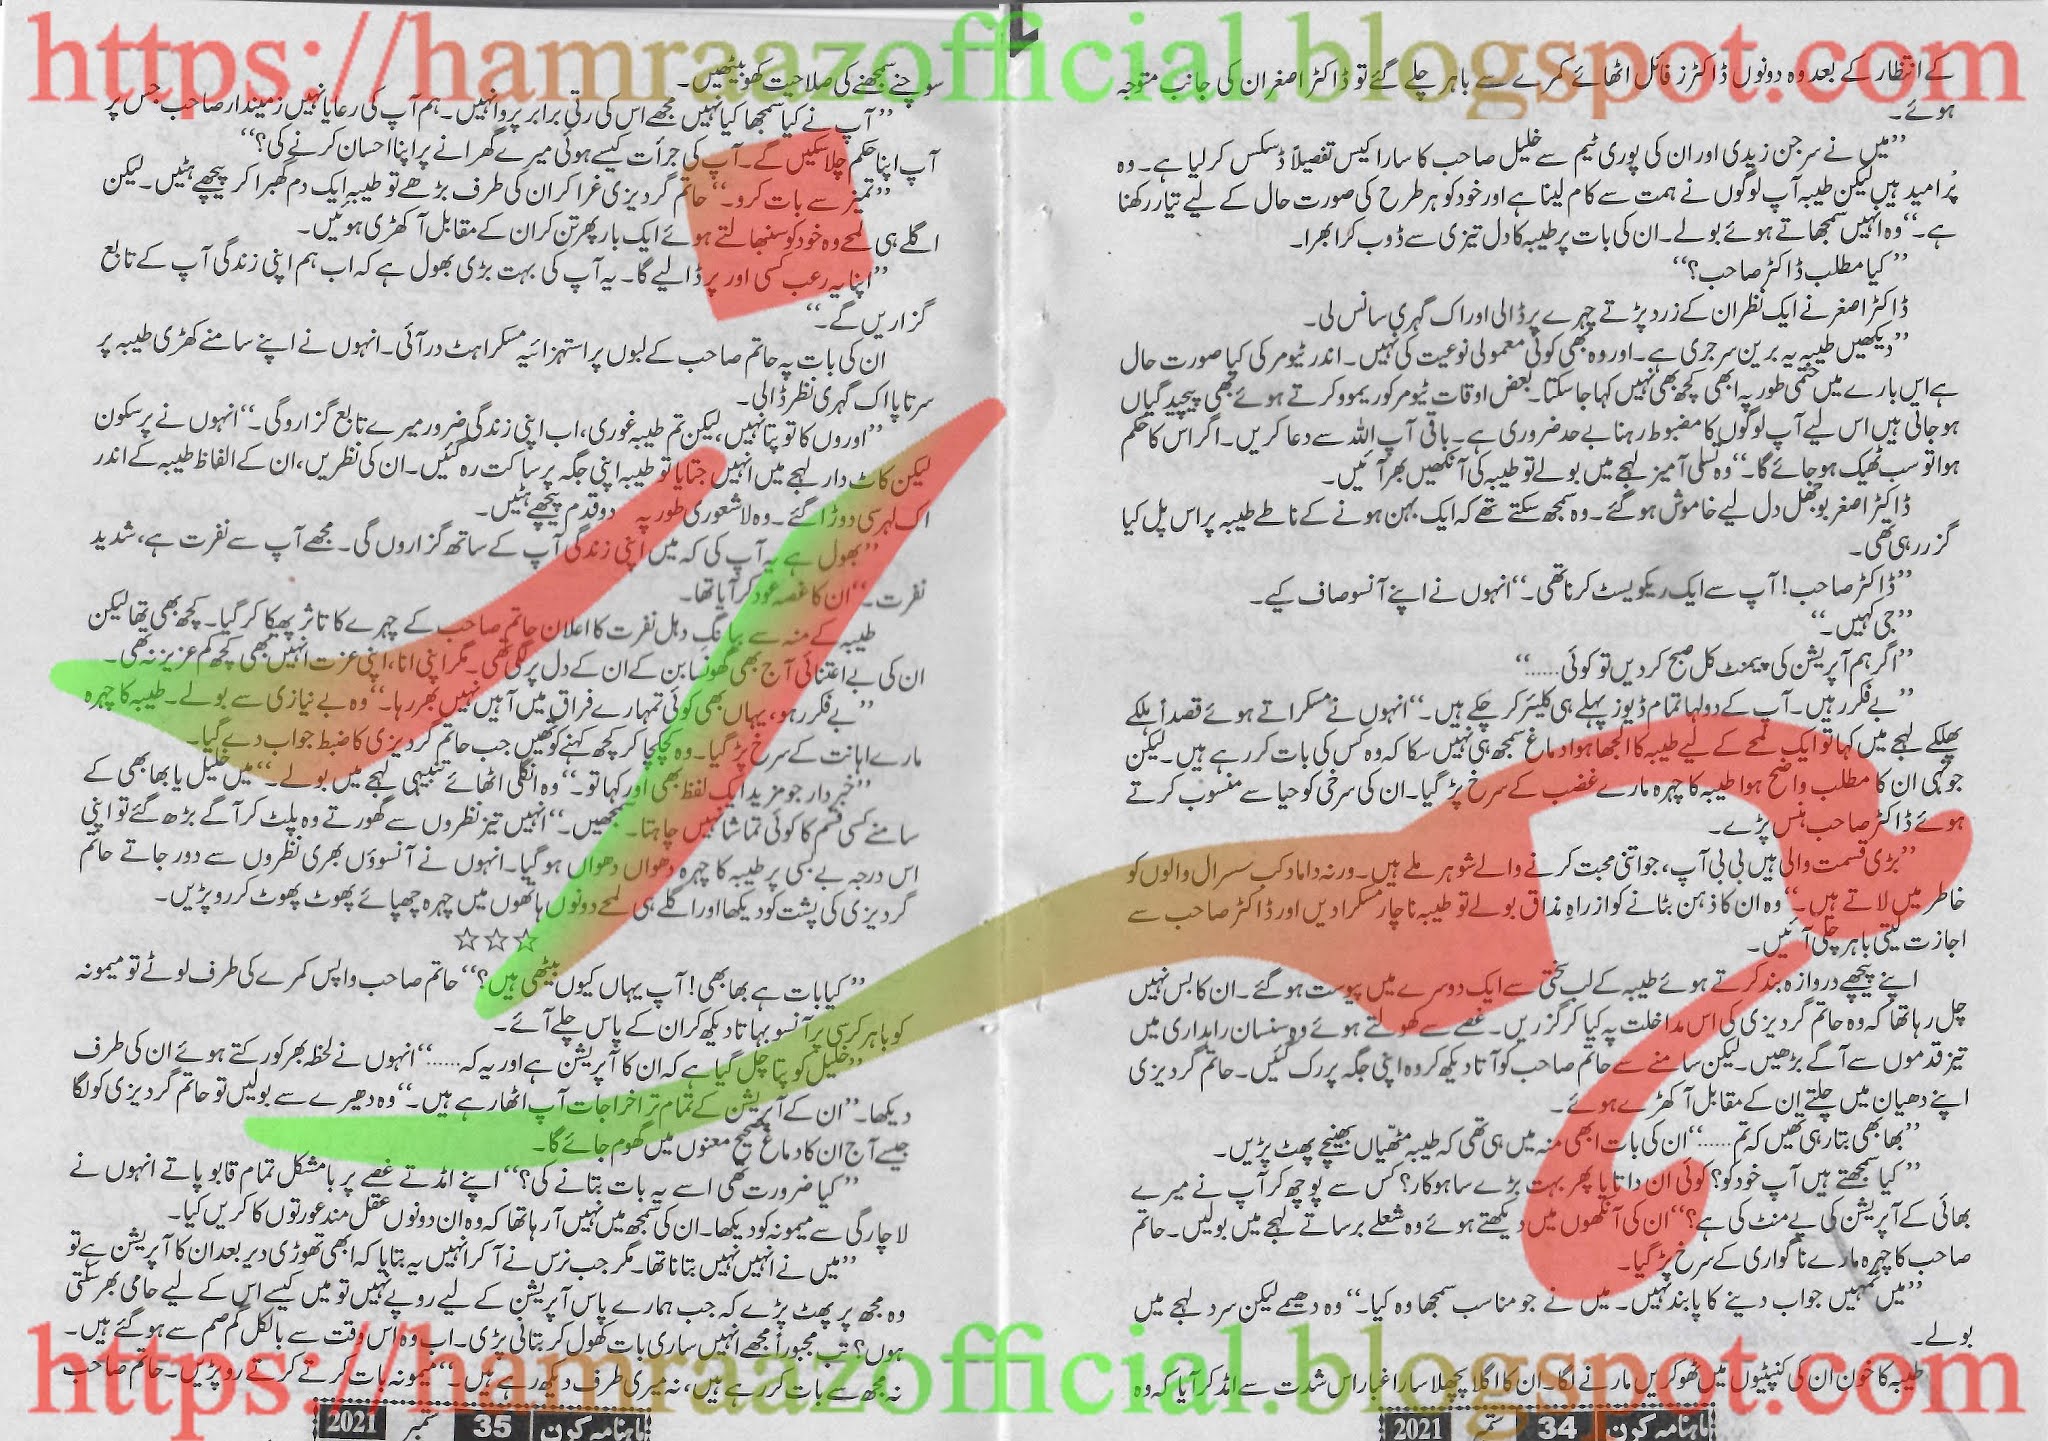 https://hamraazofficial.blogspot.com
کے انتظار کے بعد وہ دونوں ڈاکٹرز فائل اٹھائے کمرے سے باہر چلے گئے تو ڈاکٹر اصغر ان کی جانب متوجہ
ہوئے۔
”میں نے سرجن زیدی اور ان کی پوری ٹیم سے خلیل صاحب کا سارا کیس تفصیلاً ڈسکس کر لیا ہے۔ وہ
پُرامید ہیں لیکن طیبہ آپ لوگوں نے ہمت سے کام لینا ہے اور خود کو ہر طرح کی صورت حال کے لیے تیار رکھنا
ہے۔“ وہ انہیں سمجھاتے ہوئے بولے۔ ان کی بات پر طیبہ کا دل تیزی سے ڈوب کر ابھرا۔
”کیا مطلب ڈاکٹر صاحب؟“
ڈاکٹر اصغر نے ایک نظر ان کے زرد پڑتے چہرے پر ڈالی اور اک گہری سانس لی۔
”دیکھیں طیبہ یہ برین سرجری ہے۔ اور وہ بھی کوئی معمولی نوعیت کی نہیں۔ اندر ٹیومر کی کیا صورت حال
ہے اس بارے میں حتمی طور پہ ابھی کچھ بھی نہیں کہا جا سکتا۔ بعض اوقات ٹیومر کو ریموو کرتے ہوئے بھی پیچیدگیاں
ہو جاتی ہیں اس لیے آپ لوگوں کا مضبوط رہنا بے حد ضروری ہے۔ باقی آپ اللہ سے دعا کریں۔ اگر اس کا حکم
ہوا تو سب ٹھیک ہو جائے گا۔“ وہ تسلی آمیز لہجے میں بولے تو طیبہ کی آنکھیں بھر آئیں۔
ڈاکٹر اصغر بوجھل دل لیے خاموش ہو گئے۔ وہ سمجھ سکتے تھے کہ ایک بہن ہونے کے ناطے طیبہ پر اس پل کیا
گزر رہی تھی۔
”ڈاکٹر صاحب! آپ سے ایک ریکویسٹ کرنا تھی۔“ انہوں نے اپنے آنسو صاف کیے۔
”جی کہیں۔“
”اگر ہم آپریشن کی پیمنٹ کل صبح کر دیں تو کوئی……“
”بے فکر رہیں۔ آپ کے دولہا تمام ڈیوز پہلے ہی کلیئر کر چکے ہیں۔“ انہوں نے مسکراتے ہوئے قصداً ہلکے
پھلکے لہجے میں کہا تو ایک لمحے کے لیے طیبہ کا الجھا ہوا دماغ سمجھ ہی نہیں سکا کہ وہ کس کی بات کر رہے ہیں۔ لیکن
جونہی ان کا مطلب واضح ہوا طیبہ کا چہرہ مارے غضب کے سرخ پڑ گیا۔ ان کی سرخی کو حیا سے منسوب کرتے
ہوئے ڈاکٹر صاحب ہنس پڑے۔
”بڑی قسمت والی ہیں بی بی آپ، جو اتنی محبت کرنے والے شوہر ملے ہیں۔ ورنہ داماد کب سسرال والوں کو
خاطر میں لاتے ہیں۔“ وہ ان کا ذہن بٹانے کو ازراہِ مذاق بولے تو طیبہ ناچار مسکرا دیں اور ڈاکٹر صاحب سے
اجازت لیتی باہر چلی آئیں۔
اپنے پیچھے دروازہ بند کرتے ہوئے طیبہ کے لب سختی سے ایک دوسرے میں پیوست ہو گئے۔ ان کا بس نہیں
چل رہا تھا کہ وہ حاتم گردیزی کی اس مداخلت پہ کیا کر گزریں۔ غصے سے کھولتے ہوئے وہ سنسان راہداری میں
تیز قدموں سے آگے بڑھیں۔ لیکن سامنے سے حاتم صاحب کو آتا دیکھ کر وہ اپنی جگہ پر رک گئیں۔ حاتم گردیزی
اپنے دھیان میں چلتے ان کے مقابل آ کھڑے ہوئے۔
”بھابھی بتا رہی تھیں کہ تم……“ ان کی بات ابھی منہ میں ہی تھی کہ طیبہ مٹھیاں بھینچے پھٹ پڑیں۔
”کیا سمجھتے ہیں آپ خود کو؟ کوئی ان داتا یا پھر بہت بڑے ساہوکار؟ کس سے پوچھ کر آپ نے میرے
بھائی کے آپریشن کی پے منٹ کی ہے؟“ ان کی آنکھوں میں دیکھتے ہوئے وہ شعلے برساتے لہجے میں بولیں۔ حاتم
صاحب کا چہرہ مارے ناگواری کے سرخ پڑ گیا۔
”میں تمہیں جواب دینے کا پابند نہیں۔ میں نے جو مناسب سمجھا وہ کیا۔“ وہ دھیمے لیکن سرد لہجے میں
بولے۔
طیبہ کا خون ان کی کنپٹیوں میں ٹھوکریں مارنے لگا۔ ان کا اگلا پچھلا سارا غبار اس شدت سے امڈ کر آیا کہ وہ
ماہنامہ کرن 34 ستمبر 2021
سوچنے سمجھنے کی صلاحیت کھو بیٹھیں۔
”آپ نے کیا سمجھا کیا نہیں مجھے اس کی رتی برابر پروا نہیں۔ ہم آپ کی رعایا نہیں زمیندار صاحب جس پر
آپ اپنا حکم چلا سکیں گے۔ آپ کی جرأت کیسے ہوئی میرے گھرانے پر اپنا احسان کرنے کی؟“
”تمیز سے بات کرو۔“ حاتم گردیزی غرا کر ان کی طرف بڑھے تو طیبہ ایک دم گھبرا کر پیچھے ہٹیں۔ لیکن
اگلے ہی لمحے وہ خود کو سنبھالتے ہوئے ایک بار پھر تن کر ان کے مقابل آ کھڑی ہوئیں۔
”اپنا یہ رعب کسی اور پر ڈالیے گا۔ یہ آپ کی بہت بڑی بھول ہے کہ اب ہم اپنی زندگی آپ کے تابع
گزاریں گے۔“
ان کی بات پہ حاتم صاحب کے لبوں پر استہزائیہ مسکراہٹ در آئی۔ انہوں نے اپنے سامنے کھڑی طیبہ پر
سرتاپا اک گہری نظر ڈالی۔
”اوروں کا تو پتا نہیں، لیکن تم طیبہ غوری، اب اپنی زندگی ضرور میرے تابع گزارو گی۔“ انہوں نے پرسکون
لیکن کاٹ دار لہجے میں انہیں جتایا تو طیبہ اپنی جگہ پر ساکت رہ گئیں۔ ان کی نظریں، ان کے الفاظ طیبہ کے اندر
اک لہر سی دوڑا گئے۔ وہ لاشعوری طور پہ دو قدم پیچھے ہٹیں۔
”بھول ہے یہ آپ کی کہ میں اپنی زندگی آپ کے ساتھ گزاروں گی۔ مجھے آپ سے نفرت ہے، شدید
نفرت۔“ ان کا غصہ عود کر آیا تھا۔
طیبہ کے منہ سے ببانگِ دہل نفرت کا اعلان حاتم صاحب کے چہرے کا تاثر پھیکا کر گیا۔ کچھ بھی تھا لیکن
ان کی بے اعتنائی آج بھی گھونسا بن کے ان کے دل پر لگی تھی۔ مگر اپنی انا، اپنی عزت انہیں بھی کچھ کم عزیز نہ تھی۔
”بے فکر رہو، یہاں بھی کوئی تمہارے فراق میں آہیں نہیں بھر رہا۔“ وہ بے نیازی سے بولے۔ طیبہ کا چہرہ
مارے اہانت کے سرخ پڑ گیا۔ وہ کچکچا کر کچھ کہنے کو تھیں جب حاتم گردیزی کا ضبط جواب دے گیا۔
”خبردار جو مزید ایک لفظ بھی اور کہا تو۔“ وہ انگلی اٹھائے تنبیہی لہجے میں بولے۔ ”میں خلیل یا بھابھی کے
سامنے کسی قسم کا کوئی تماشا نہیں چاہتا۔ سمجھیں۔“ انہیں تیز نظروں سے گھورتے وہ پلٹ کر آگے بڑھ گئے تو اپنی
اس درجہ بے بسی پر طیبہ کا چہرہ دھواں دھواں ہو گیا۔ انہوں نے آنسوؤں بھری نظروں سے دور جاتے حاتم
گردیزی کی پشت کو دیکھا اور اگلے ہی لمحے دونوں ہاتھوں میں چہرہ چھپائے پھوٹ پھوٹ کر رو پڑیں۔
☆☆☆
”کیا بات ہے بھابھی! آپ یہاں کیوں بیٹھی ہیں؟“ حاتم صاحب واپس کمرے کی طرف لوٹے تو میمونہ
کو باہر کرسی پر آنسو بہاتا دیکھ کر ان کے پاس چلے آئے۔
”خلیل کو پتا چل گیا ہے کہ ان کا آپریشن ہے اور یہ کہ……“ انہوں نے لحظہ بھر کو رکتے ہوئے ان کی طرف
دیکھا۔ ”ان کے آپریشن کے تمام تر اخراجات آپ اٹھا رہے ہیں۔“ وہ دھیرے سے بولیں تو حاتم گردیزی کو لگا
جیسے آج ان کا دماغ صحیح معنوں میں گھوم جائے گا۔
”کیا ضرورت تھی اسے یہ بات بتانے کی؟“ اپنے امڈتے غصے پر بامشکل تمام قابو پاتے انہوں نے
لاچارگی سے میمونہ کو دیکھا۔ ان کی سمجھ میں نہیں آ رہا تھا کہ وہ ان دونوں عقل مند عورتوں کا کریں کیا۔
”میں نے انہیں نہیں بتانا تھا۔ مگر جب نرس نے آ کر انہیں یہ بتایا کہ ابھی تھوڑی دیر بعد ان کا آپریشن ہے تو
وہ مجھ پر پھٹ پڑے کہ جب ہمارے پاس آپریشن کے لیے روپے نہیں تو میں کیسے اس کے لیے حامی بھر سکتی
ہوں؟ تب مجبوراً مجھے انہیں ساری بات کھول کر بتانی پڑی۔ اب وہ اس وقت سے بالکل گم صم سے ہو گئے ہیں۔
نہ مجھ سے بات کر رہے ہیں، نہ میری طرف دیکھ رہے ہیں۔“ میمونہ بات کرتے کرتے رو پڑیں۔ حاتم صاحب
ماہنامہ کرن 35 ستمبر 2021
https://hamraazofficial.blogspot.com